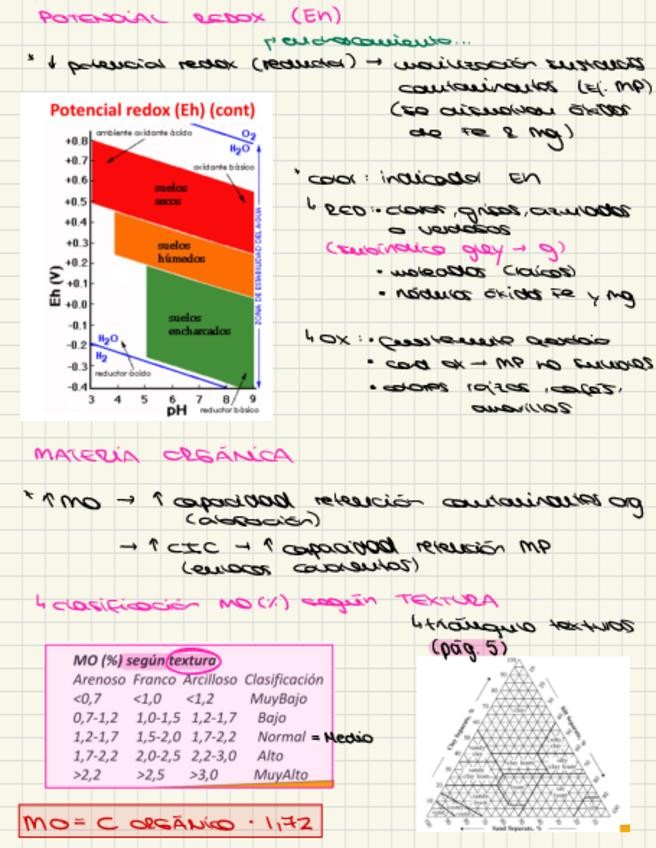 POTENCIAL REDOX (Eh)
* ↓ potencial redox (reductor) → movilización sustancias
contaminantes (Ej. MP)
(se disuelven óxidos
de Fe & Mg)
Potencial redox (Eh) (cont)
ambiente oxidante ácido
O2
H2O
oxidante básico
suelos
secos
suelos
húmedos
suelos
encharcados
ZONA DE ESTABILIDAD DEL AGUA
H2O
H2
reductor ácido
reductor básico
Eh (V)
+0.8
+0.7
+0.6
+0.5
+0.4
+0.3
+0.2
+0.1
+0.0
-0.1
-0.2
-0.3
-0.4
3 4 5 6 7 8 9
pH
* color: indicador Eh
↳ RED: • claros, grises, azulados
o verdosos
(subíndice gley → g)
• moteados
• nódulos óxidos Fe y Mg
↳ OX:
• cond ox → MP no
• colores rojizos, cafés,
amarillos
MATERIA ORGÁNICA
* ↑ MO → ↑ capacidad retención contaminantes org
→ ↑ CIC → ↑ capacidad retención MP
(enlaces covalentes)
↳ clasificación MO (%) según TEXTURA
↳ triángulo texturas
(pág. 5)
MO (%) según textura
Arenoso Franco Arcilloso Clasificación
<0,7 <1,0 <1,2 MuyBajo
0,7-1,2 1,0-1,5 1,2-1,7 Bajo
1,2-1,7 1,5-2,0 1,7-2,2 Normal = Medio
1,7-2,2 2,0-2,5 2,2-3,0 Alto
>2,2 >2,5 >3,0 MuyAlto
Clay Separate, %
Silt Separate, %
Sand Separate, %
MO = C ORGÁNICO · 1,72